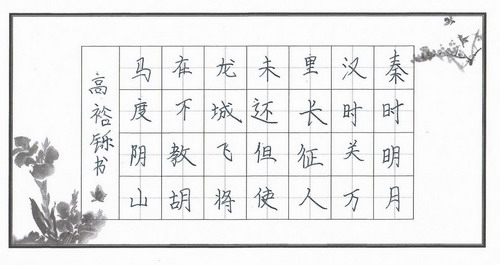 秦时明月
汉时关万
里长征人
未还但使
龙城飞将
在不教胡
马度阴山
高裕铄书